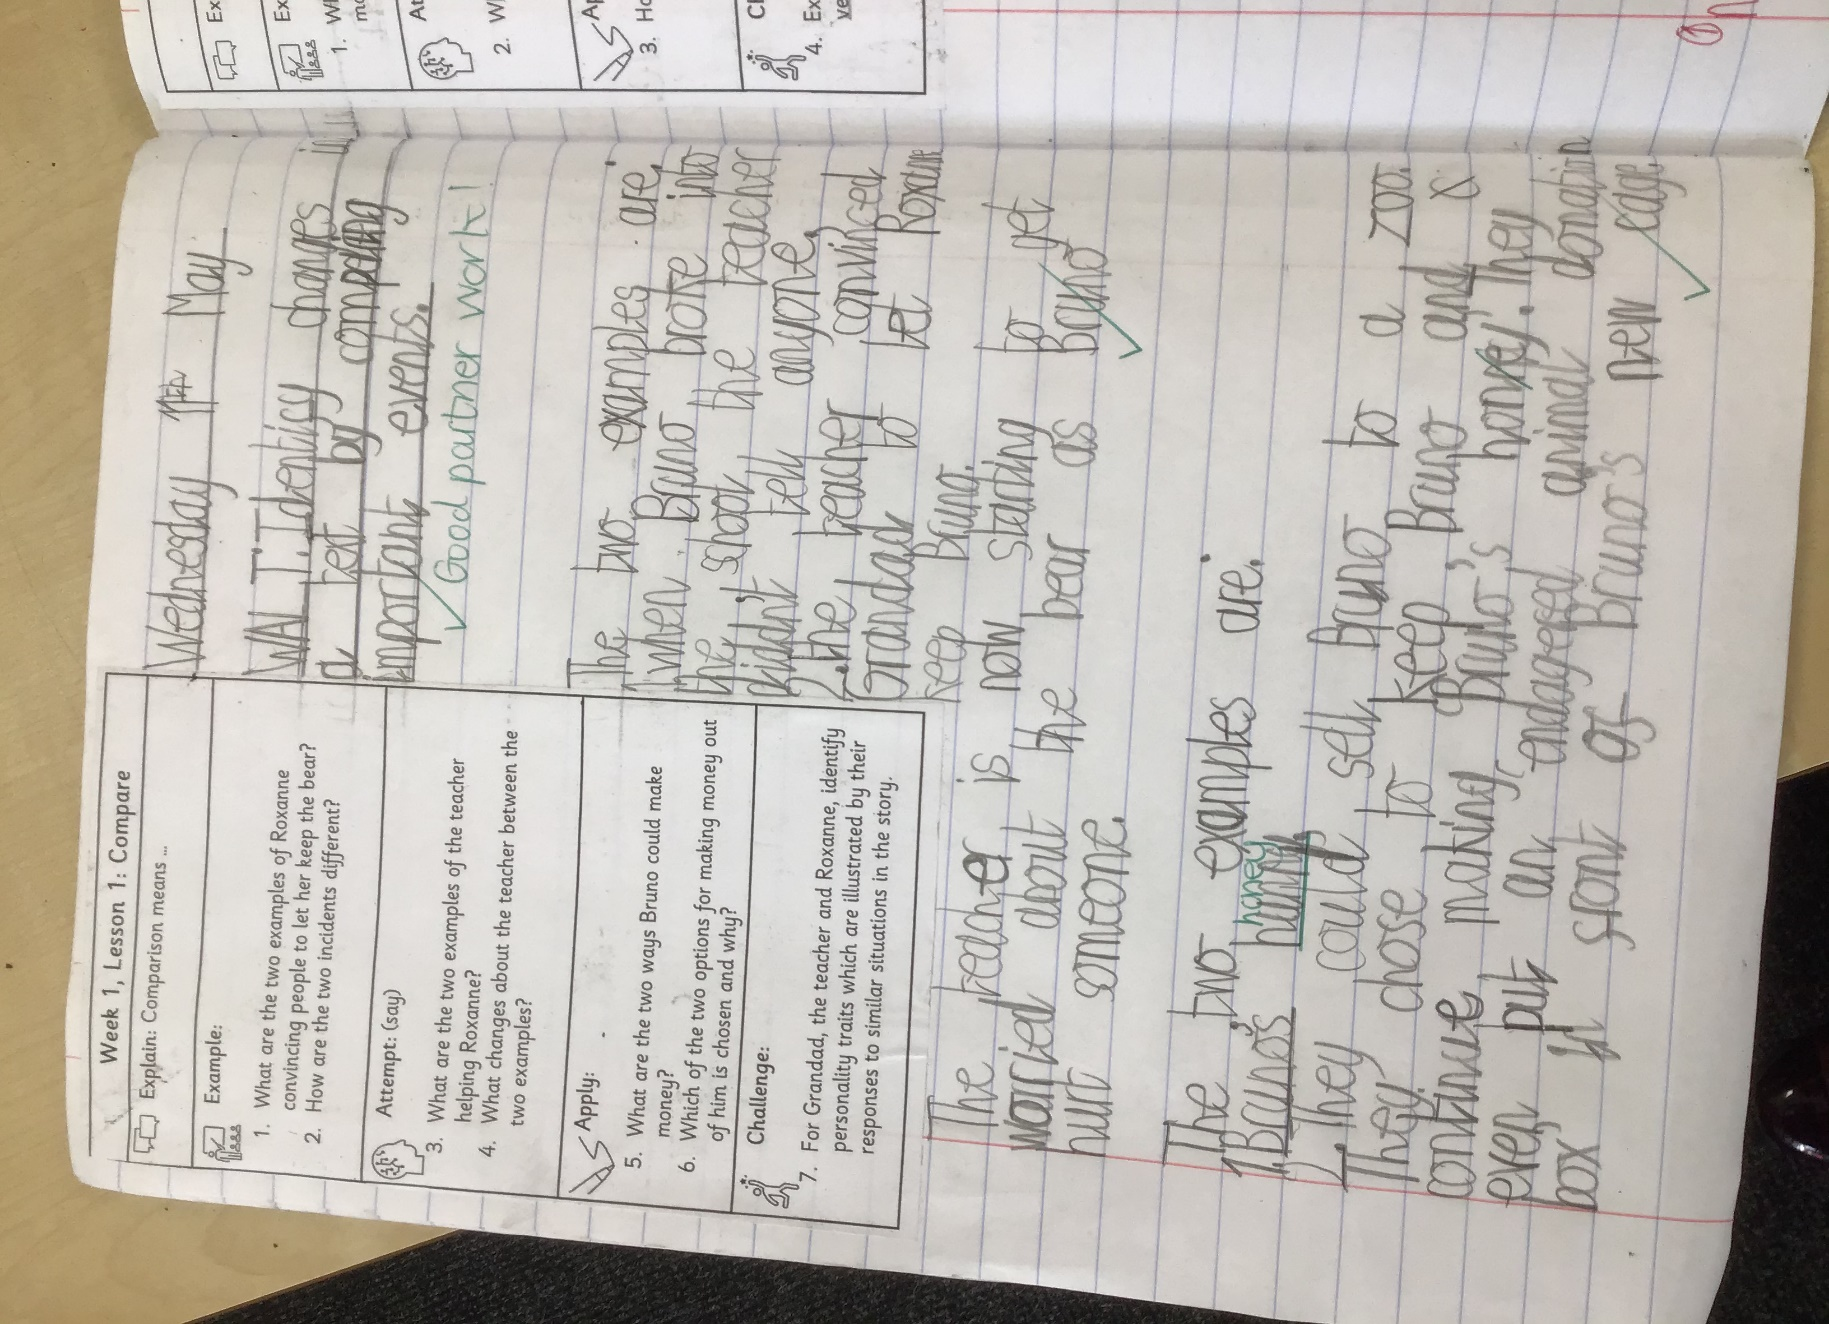 Week 1, Lesson 1: Compare
Explain: Comparison means ...
Example:
1. What are the two examples of Roxanne
convincing people to let her keep the bear?
2. How are the two incidents different?
Attempt: (say)
3. What are the two examples of the teacher
helping Roxanne?
4. What changes about the teacher between the
two examples?
Apply:
5. What are the two ways Bruno could make
money?
6. Which of the two options for making money out
of him is chosen and why?
Challenge:
7. For Grandad, the teacher and Roxanne, identify
personality traits which are illustrated by their
responses to similar situations in the story.
Wednesday May
WAL.T.Identify changes in
a text by comparing
important events.
Good partner work!
The two examples are:
1.When Bruno broke into
the school the teacher
didn't tell anyone.
2.The teacher convinced
Grandad to let Roxanne
keep Bruno.
The teacher is now starting to get
worried about the bear as Bruno
hurt someone.
The two examples are:
1.Bruno's honey
2.They could sell Bruno to a zoo.
They chose to keep Bruno and
continue making Bruno's honey. They
even put an endagered animal donation
box in front of Bruno's new cage.
Ex
Ex
1. W
At
2. W
Ap
3. Ho
Ch
4. Ex
ve